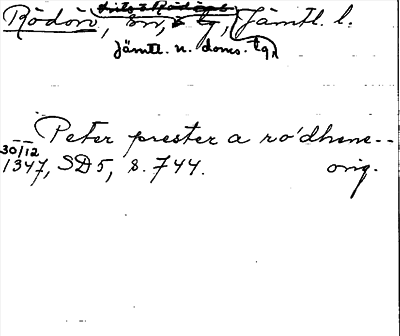 Rödön, sn, tg, Jämtl. l.
Jämtl. n. doms. tg
Peter prester a ro'dhene--
30/12
1347, SD5, s. 744. orig.